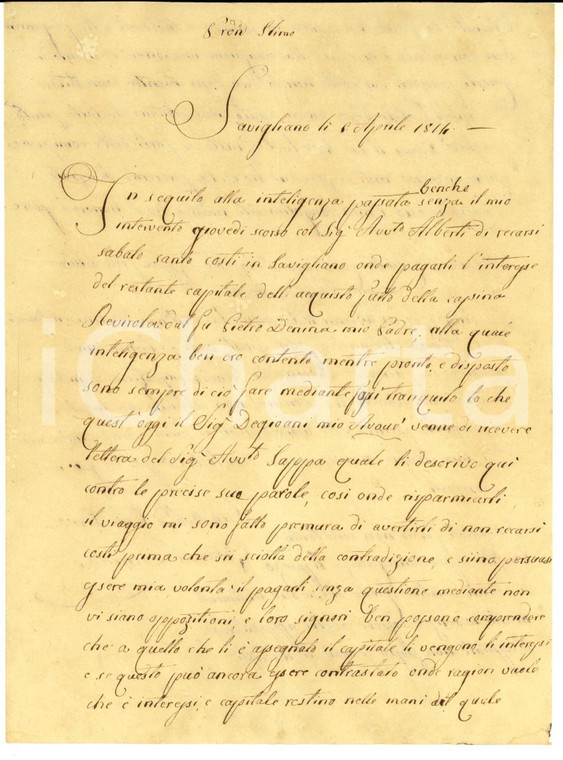 Savigliano li 8 Aprile 1814 —
benchè
In seguito alla inteligenza passata senza il mio
intervento giovedi scorso col Sigr Avvto Alberti di recarsi
sabato santo costì in Savigliano onde pagarli l'interesse
del restante capitale dell acquisto fatto della capsina
dal fu Pietro Denina mio Padre, alla quale
inteligenza ben ero contento mentre pronto, e disposto
sono sempre di ciò fare mediante tranquilo lo che
quest'oggi il Sigr Degioani mio venne di ricevere
lettera del Sigr Avvto Sappa quale li descrivo qui
contro le precise sue parole, così onde risparmiarli
il viaggio mi sono fatto premura di avertirli di non recarsi
costì prima che sii sciolta della contradizione, e siino persuasi
essere mia volontà il pagarli senza questione mediante non
vi siano oppozitioni, e loro signori ben possono comprendere
che a quello che li è assegnato il capitale li vengono li interessi
e se questo può ancora essere contrastato onde ragion vuole
che è interessi, e capitale restino nelle mani del quale
iCharta